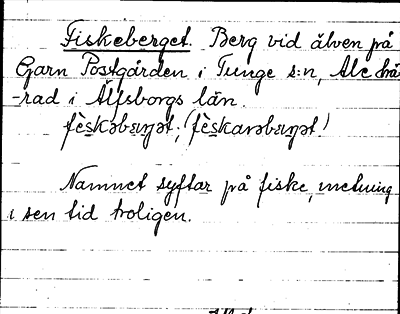 Fiskeberget. Berg vid älven på
Garn Postgården i Tunge s:n, Ale hä-
-rad i Älfsborgs län.
Namnet syftar på fiske, metning
i sen tid troligen.